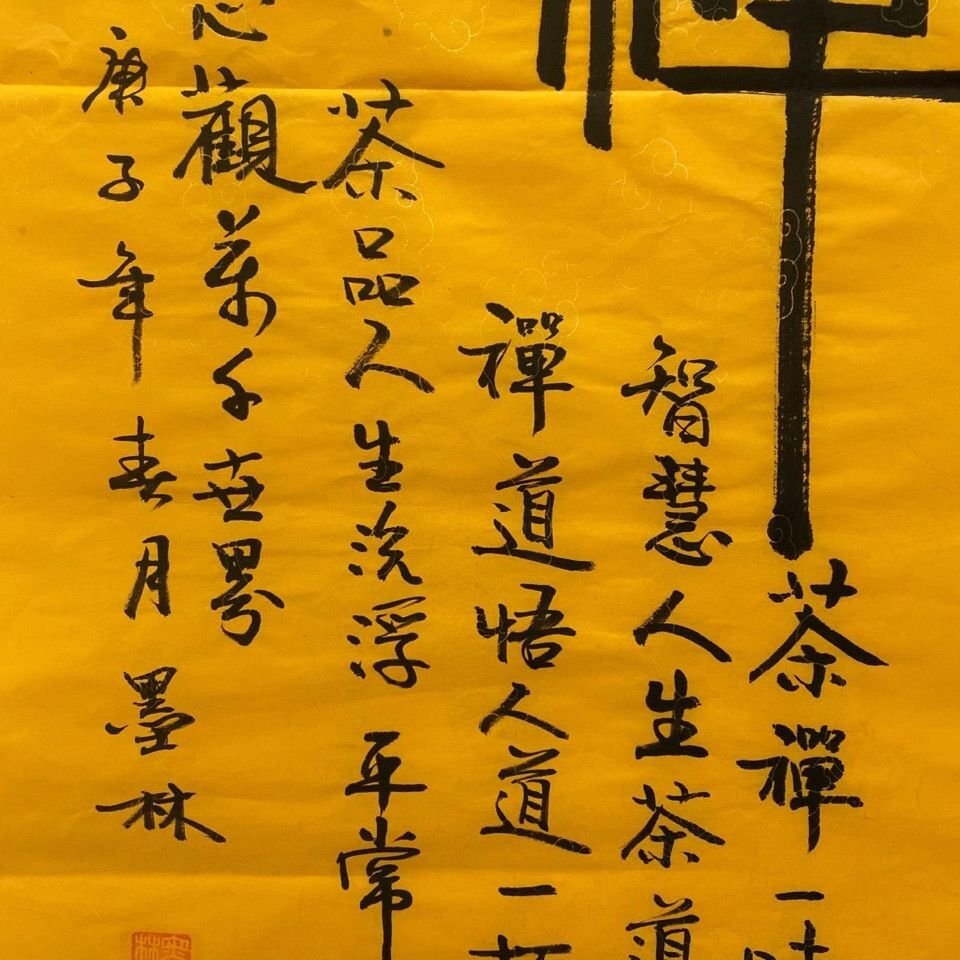 禪
茶禪一味
智慧人生茶道
禪道悟人道一杯
茶品人生沉浮平常
心觀萬千世界
庚子年春月墨林